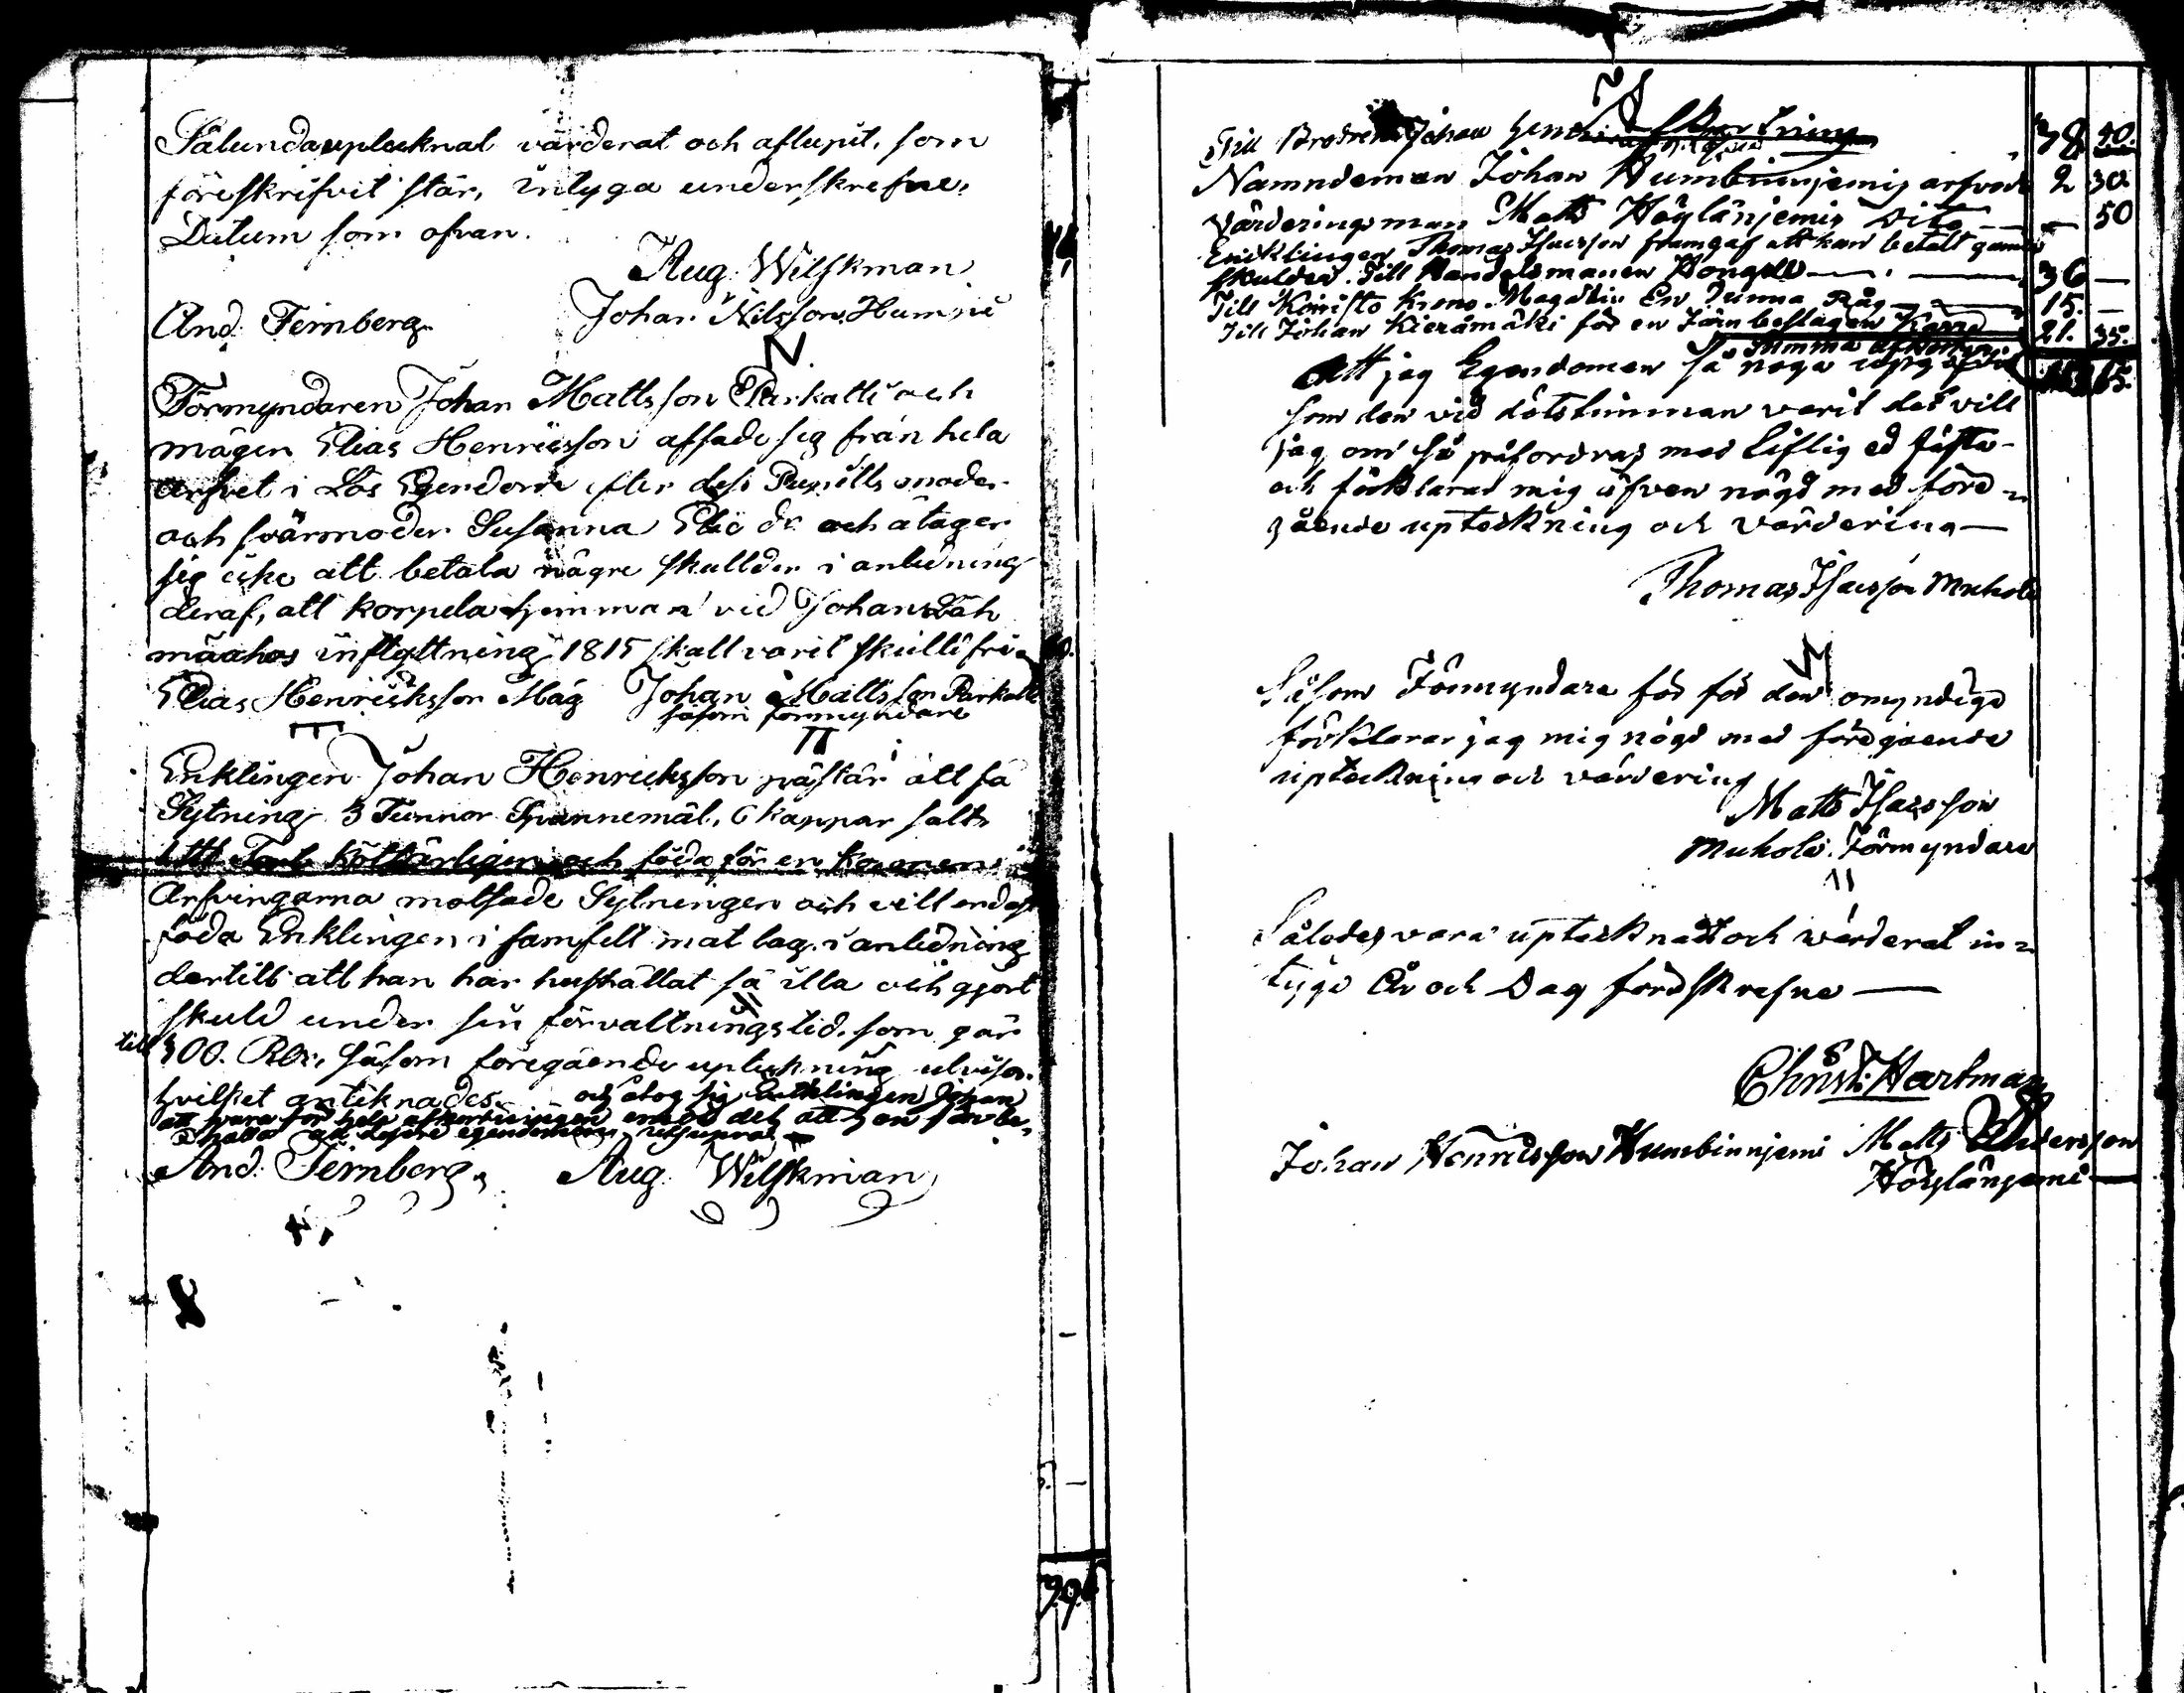 Sålunda uplecknat värderat och aflupit, som
föreskrifvit står, intyga underskrefne,
Datum som ofvan.
Aug. Wilskman
And. Fernberg Johan Nilsson Hum
Förmyndaren Johan Mattsson Parkatti och
mågen Elias Henricsson afsade sig från hela
arfvet i Lös Egendom efter dess Pupills moder
och svärmoder Susanna dr och åtager
sig icke att betala någre skullder i anledning
deraf, att korpela hemman vid Johan Läh
mäahos inflyttning 1815 skall varit skulldfri
Elias Henricksson Måg Johan Mattsson Parkatti
såsom förmyndare
Enklingen Johan Henricksson påstår att få
Sytning 3 Tunnor Spannemål, 6 kappar salt
ett kött årligen och föda för en ko men
Arfvingarna motsade Sytningen och vill endast
föda Enklingen i samfelt mat lag i anledning
dertill att han har hushållat så illa och gjort
skuld under sin förvaltningstid, som går
till 300. Rdr, såsom föregående upteckning utvisar.
hvilket anteknades. och åtog sig Enklingen Johan
att svara för hela afkortningen emot det att han får be,
hålla all lösöre egendomen
And. Fernberg Aug. Wilskman
Till Brodren Johan 38 40.
Nämndeman Johan Humbinnjemis arfvode 2 30
Värderingsman Matts Höylänjemis Dito — — 50
Enicklingen Thomas Isacsson framgaf att han betalt gamla
skulder. Till Handelsmannen Hongell — 36 —
Till Koivisto Krono Magazin En Tunna Råg — 15. —
Till Johan Kieråmäki för en Järnbeslagen Kärra 21. 35.
Summa afkortning 65.
Att jag Egendomen så noga upgifvit
som den vid dödstimman varit det vill
jag om så påfordras med Liflig ed fästa
och förklarar mig äfven nögd med före-
gående upteckning och värdering —
Thomas Isacsson Muhola
Såsom Förmyndare för för den omyndige
förklarar jag mig nögd med föregående
upteckning och värdering
Matts Isacsson
Muhola. Förmyndare
Således vara uptecknadt och värderat in-
tyga År och Dag förrskrefne —
Christ: Hartman
Johan Hennisson Humbinnjemi Matts Andersson
Höylänjemi —